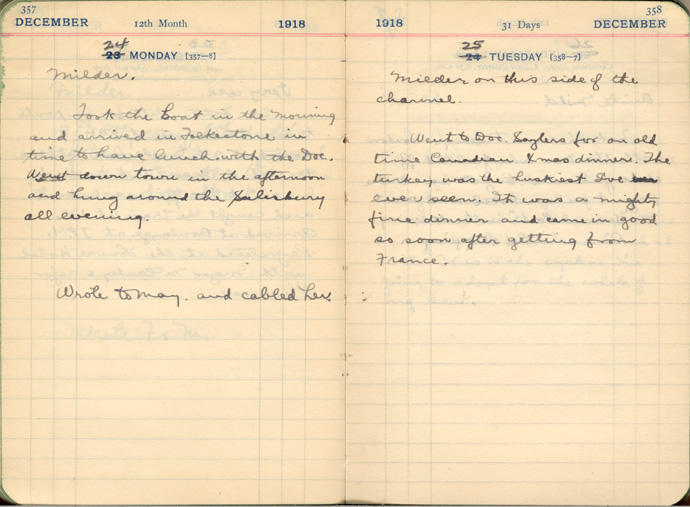 357
DECEMBER 12th Month 1918
24
23 MONDAY [357—8]
Milder.
Took the boat in the morning
and arrived in Folkestone in
time to have lunch with the Doc.
Went down town in the afternoon
and hung around the Salisbury
all evening.
Wrote to May. and cabled her.
358
1918 31 Days DECEMBER
25
24 TUESDAY [358—7]
Milder on this side of the
channel.
Went to Doc. Saylers for an old
time Canadian Xmas dinner. The
turkey was the huskiest I've
ever seen. It was a mighty
fine dinner and came in good
so soon after getting from
France.